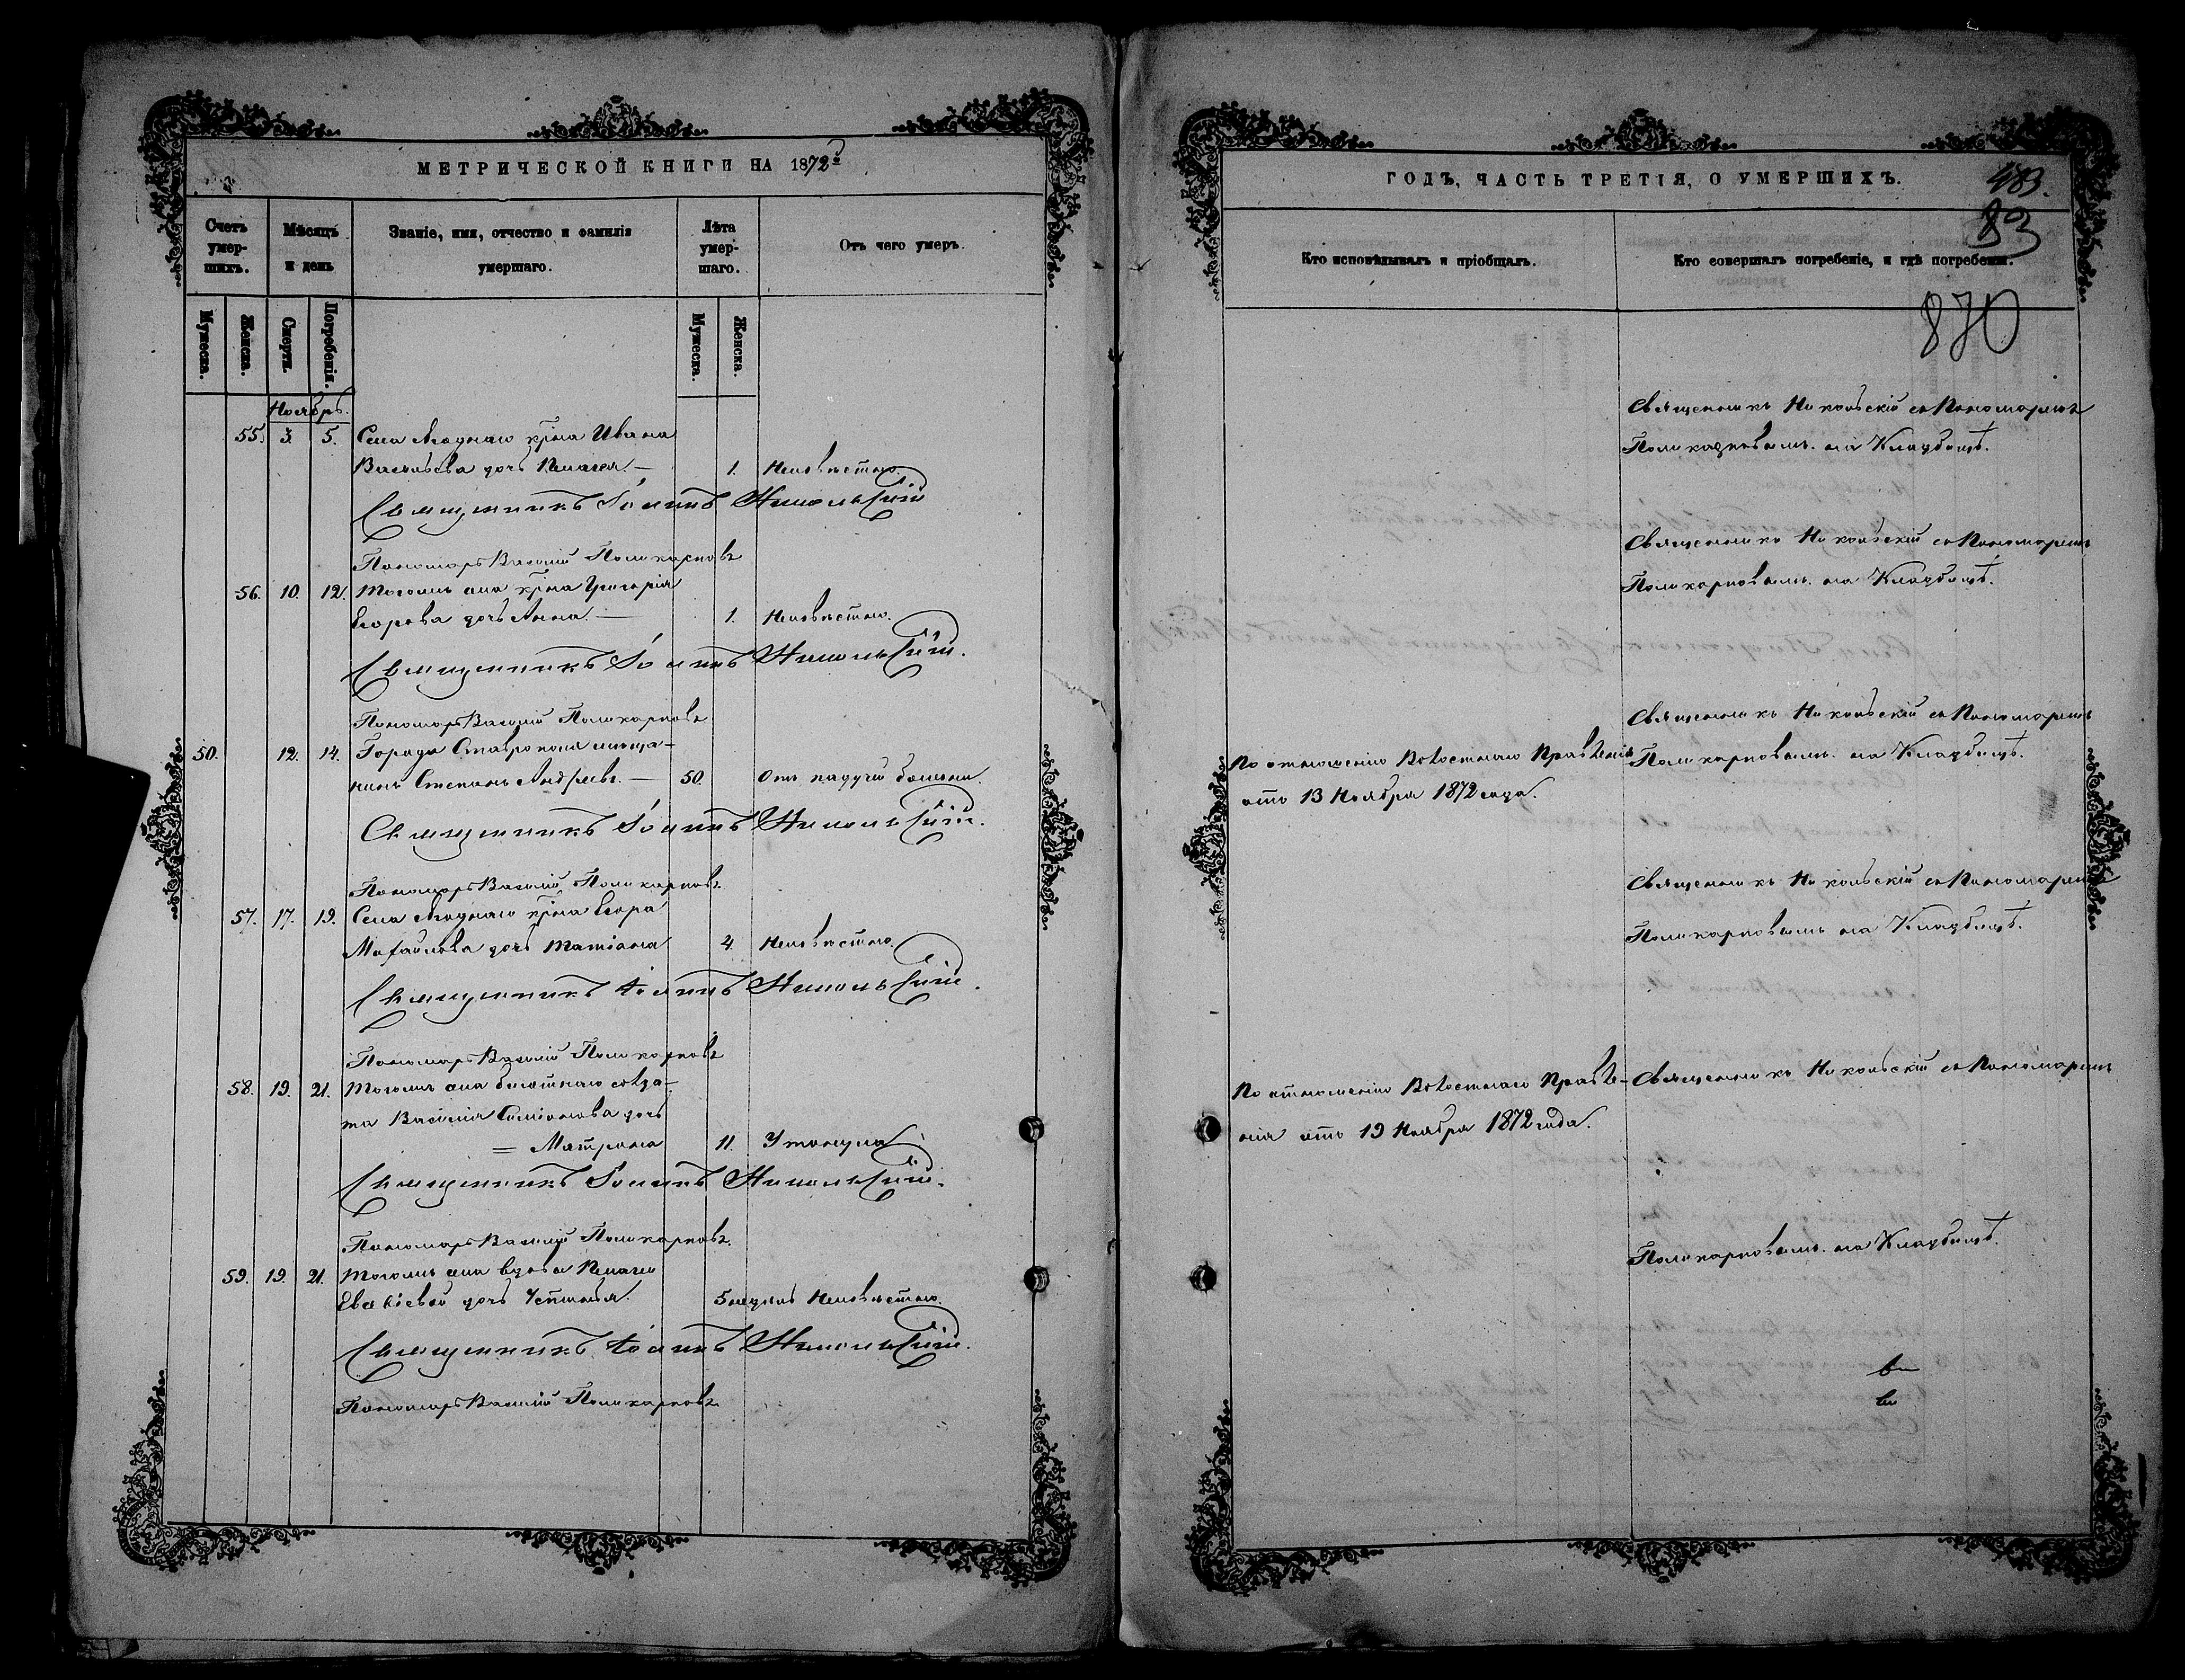 МЕТРИЧЕСКОЙ КНИГИ НА 1872й
Счетъ умер-шихъ.
Мѣсяцъ и день
Званіе, имя, отчество и фамилія умершаго.
Лѣта умер-шаго.
Отъ чего умеръ.
Мужеска.
Женска.
Смерти.
Погребенія.
Мужеска.
Женска.
Ноябрь.
55. 3. 5. Села Ягоднаго кр̃на Ивана
Васильева дочь Пелагея — 1. Неизвѣстно.
Священникъ Іоаннъ Никольскій
Пономарь Василій Поликарповъ
56. 10. 12. Тогожъ села кр̃на Григорія
Егорова дочь Анна. — 1. Неизвѣстно.
Священникъ Іоаннъ Никольскій.
Пономарь Василій Поликарповъ
50. 12. 14. Города Ставрополя мѣща-
нинъ Степанъ Андреевъ. — 50. Отъ падучей болѣзни.
Священникъ Іоаннъ Никольскій.
Пономарь Василій Поликарповъ
57. 17. 19. Села Ягоднаго кр̃на Егора
Михайлова дочь Татіана 4. Неизвѣстно.
Священникъ Іоаннъ Никольскій.
Пономарь Василій Поликарповъ
58. 19. 21. Тогожъ села билетнаго солда-
та Василія Симіонова дочь
= Матрона 11. Утонула.
Священникъ Іоаннъ Никольскій.
Пономарь Василій Поликарповъ.
59. 19. 21. Тогожъ села вдовы Пелагеи
дочь 5 недѣль Неизвѣстно.
Священникъ Іоаннъ Никольскій.
Пономарь Василій Поликарповъ
ГОДЪ, ЧАСТЬ ТРЕТІЯ, О УМЕРШИХЪ.
483.
83
Кто исповѣдывалъ и пріобщалъ.
Кто совершалъ погребеніе, и гдѣ погребены.
870
Священникъ Никольскій съ Пономаремъ
Поликарповымъ. на Кладбищѣ.
Священникъ Никольскій съ Пономаремъ
Поликарповымъ. на Кладбищѣ.
Священникъ Никольскій съ Пономаремъ
По отношенію Волостнаго Правленія Поликарповымъ. на Кладбищѣ.
отъ 13 Ноября 1872 года.
Священникъ Никольскій съ Пономаремъ
Поликарповымъ на Кладбищѣ.
По отношенію Волостнаго Правле- Священникъ Никольскій съ Пономаремъ
нія отъ 19 Ноября 1872 года.
Поликарповымъ. на Кладбищѣ.